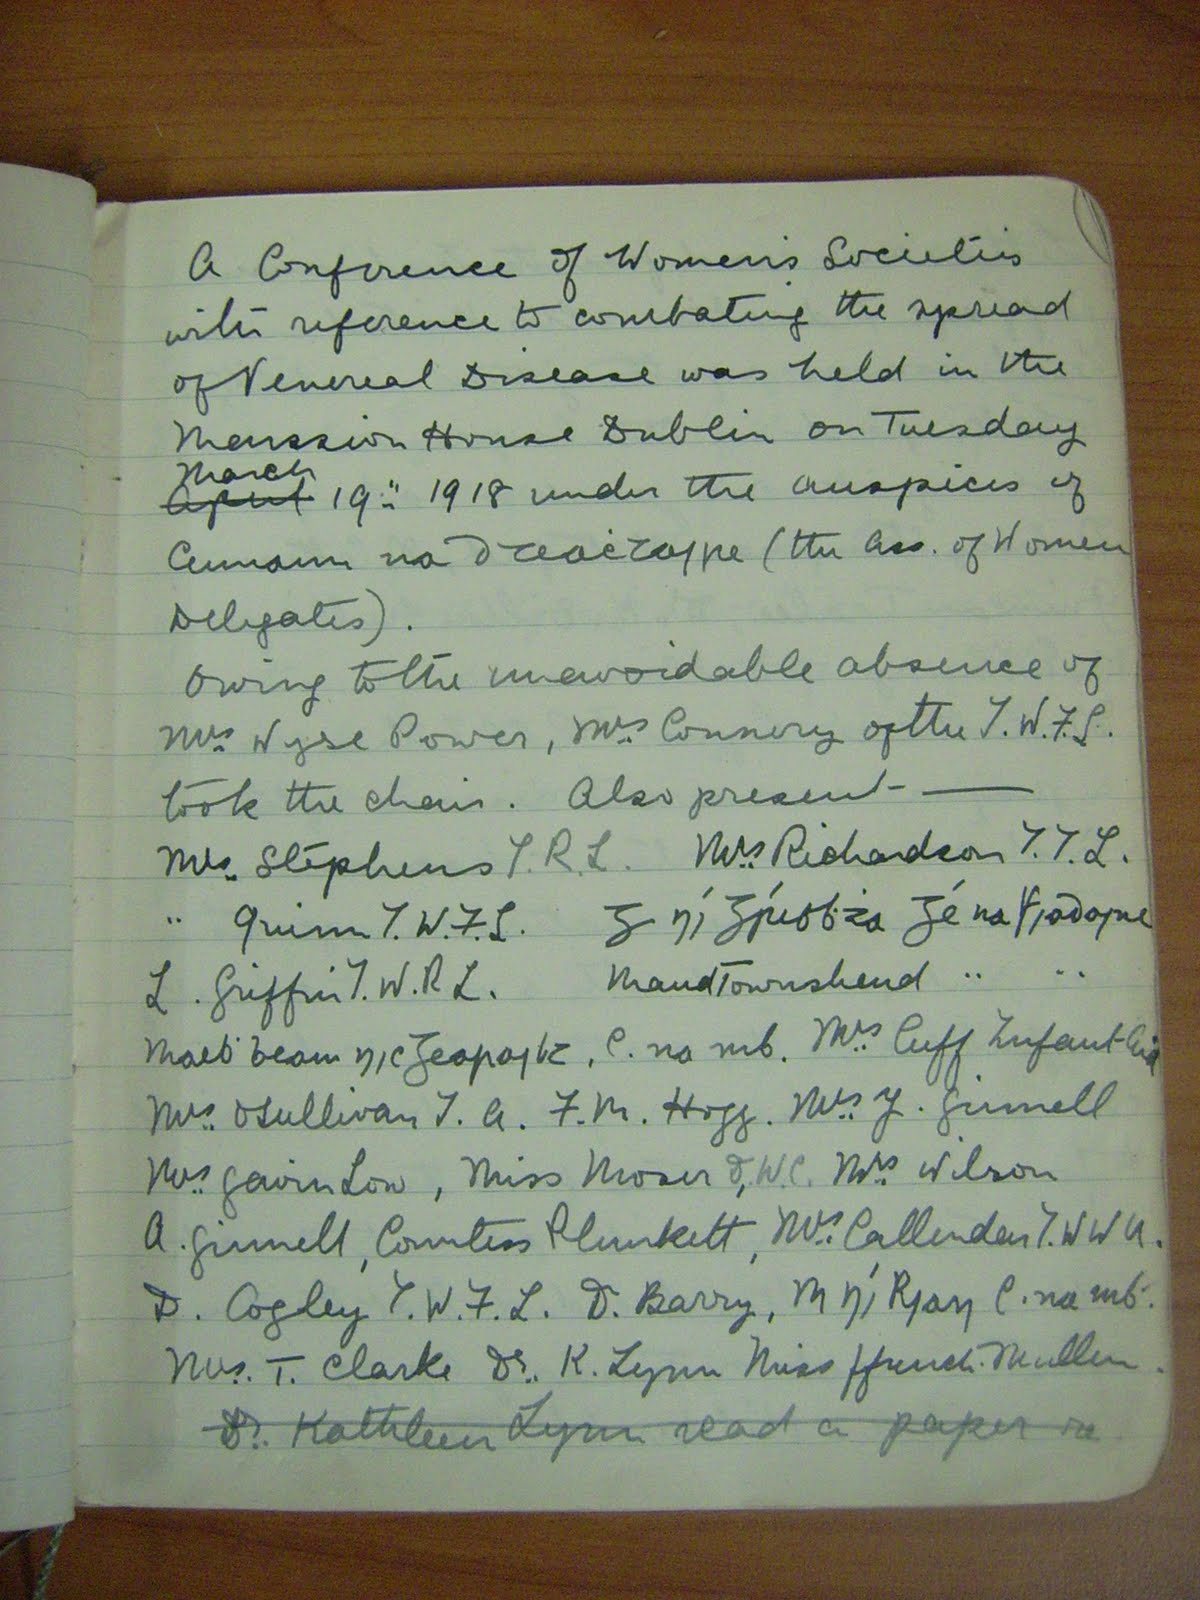 A Conference of Women's Societies
with reference to combating the spread
of Venereal Disease was held in the
Mansion House Dublin on Tuesday
March
April 19th 1918 under the auspices of
Cumann na dTeachtaire (the Ass. of Women
Delegates).
Owing to the unavoidable absence of
Mrs Wyse Power, Mrs Connery of the I.W.F.L.
took the chair. Also present —
Mrs. Stephens I.R.L. Mrs Richardson I.I.L.
" Quinn I.W.F.L. G ní Gríobhtha Gé na Fiadhaine
L. Griffin I.W.R.L. Maud Townshend " "
Maeb Cavanagh, C. na mb. Mrs Cuff Infant Aid
Mrs. O'Sullivan I.A. F.M. Hogg. Mrs. Y. Ginnell
Mrs Gavin Low, Miss Moser D,W.C. Mrs Wilson
A. Ginnell, Countess Plunkett, Mrs. Callender I.W W A.
D. Cogley I.W.F.L. D. Barry, M ní Rian C. na mb.
Mrs. T. Clarke Dr. K. Lynn Miss ffrench-Mullen.
Dr. Kathleen Lynn read a paper re